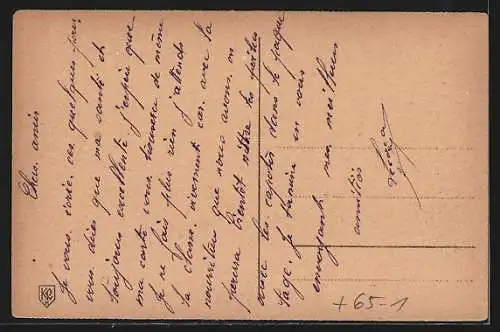 Cher amis
Je vous écrie ces quelques pour
vous dire que ma santé et
toujours excellente j'espère que
ma carte vous trouvera de même
Je ne fais plus rien j'attends
la classe vivement car avec la
nourriture que nous avons on
pourra bientôt mettre les
avec les capotes dans le paque
tage. Je termine en vous
envoyant mes meilleurs
amitiés
+65-1